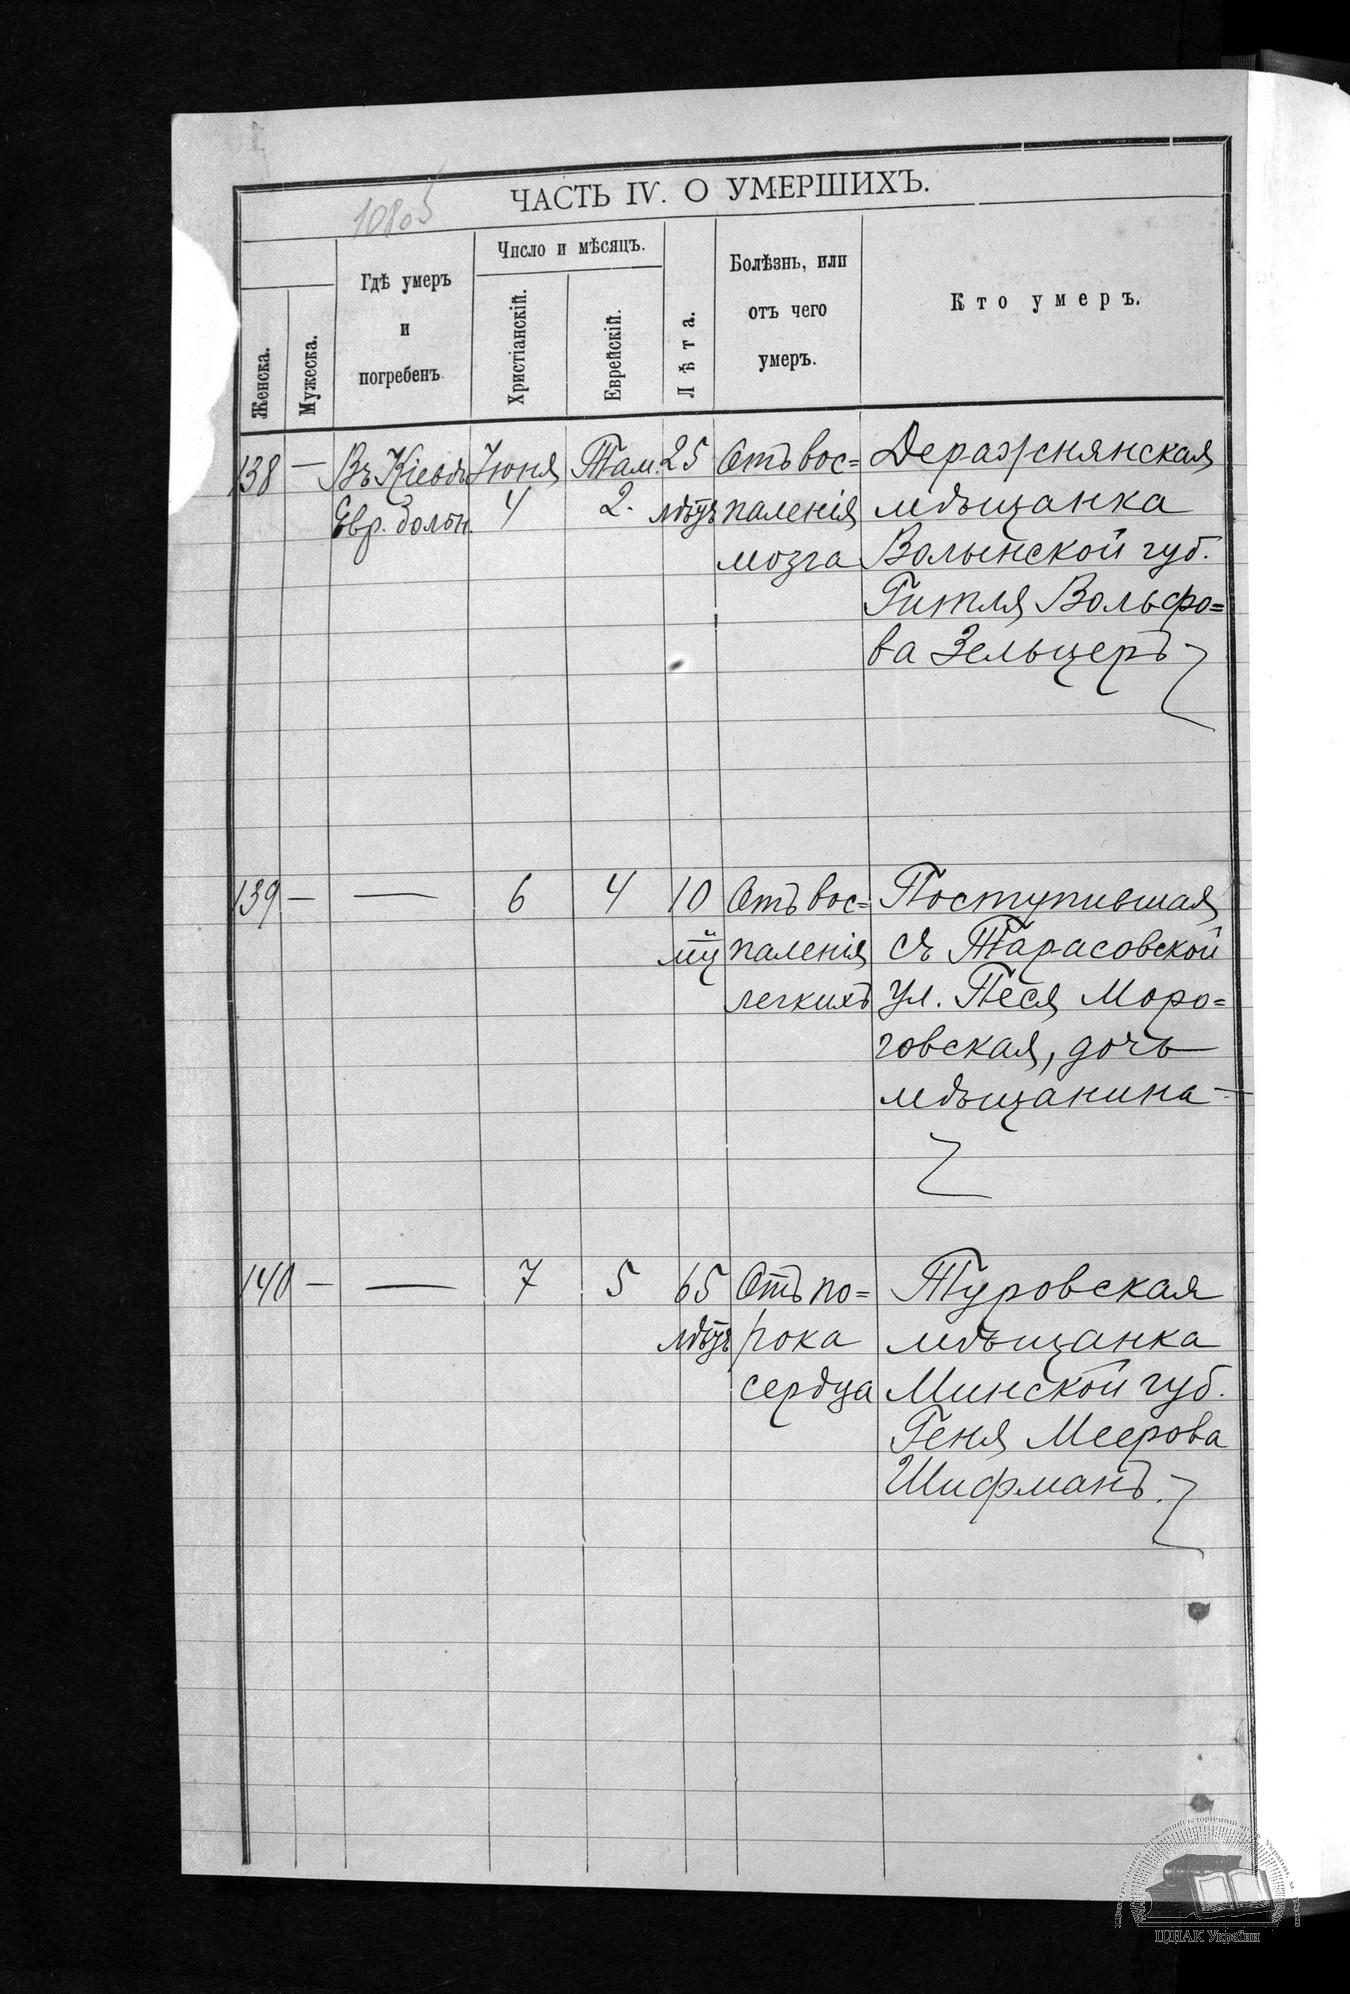 ЧАСТЬ IV. О УМЕРШИХЪ.
Женска.
Мужеска.
Гдѣ умеръ
и
погребенъ.
Число и мѣсяцъ.
Христіанскій.
Еврейскій.
Лѣта.
Болѣзнь, или
отъ чего
умеръ.
Кто умеръ.
138 — Въ Кіевѣ Іюня Там. 25 Отъ вос= Деражнянская
Евр. больн. 4 2. лѣтъ паленія мѣщанка
мозга Волынской губ.
Гитля Вольфо=
ва Зельцеръ
139 — — 6 4 10 Отъ вос= Поступившая
паленія съ Тарасовской
легкихъ ул. Песя Моро=
говская, дочь
мѣщанина —
140 — — 7 5 65 Отъ по= Туровская
лѣтъ рока мѣщанка
сердца Минской губ.
Геня Меерова
Шифманъ.
ЦДІАК України